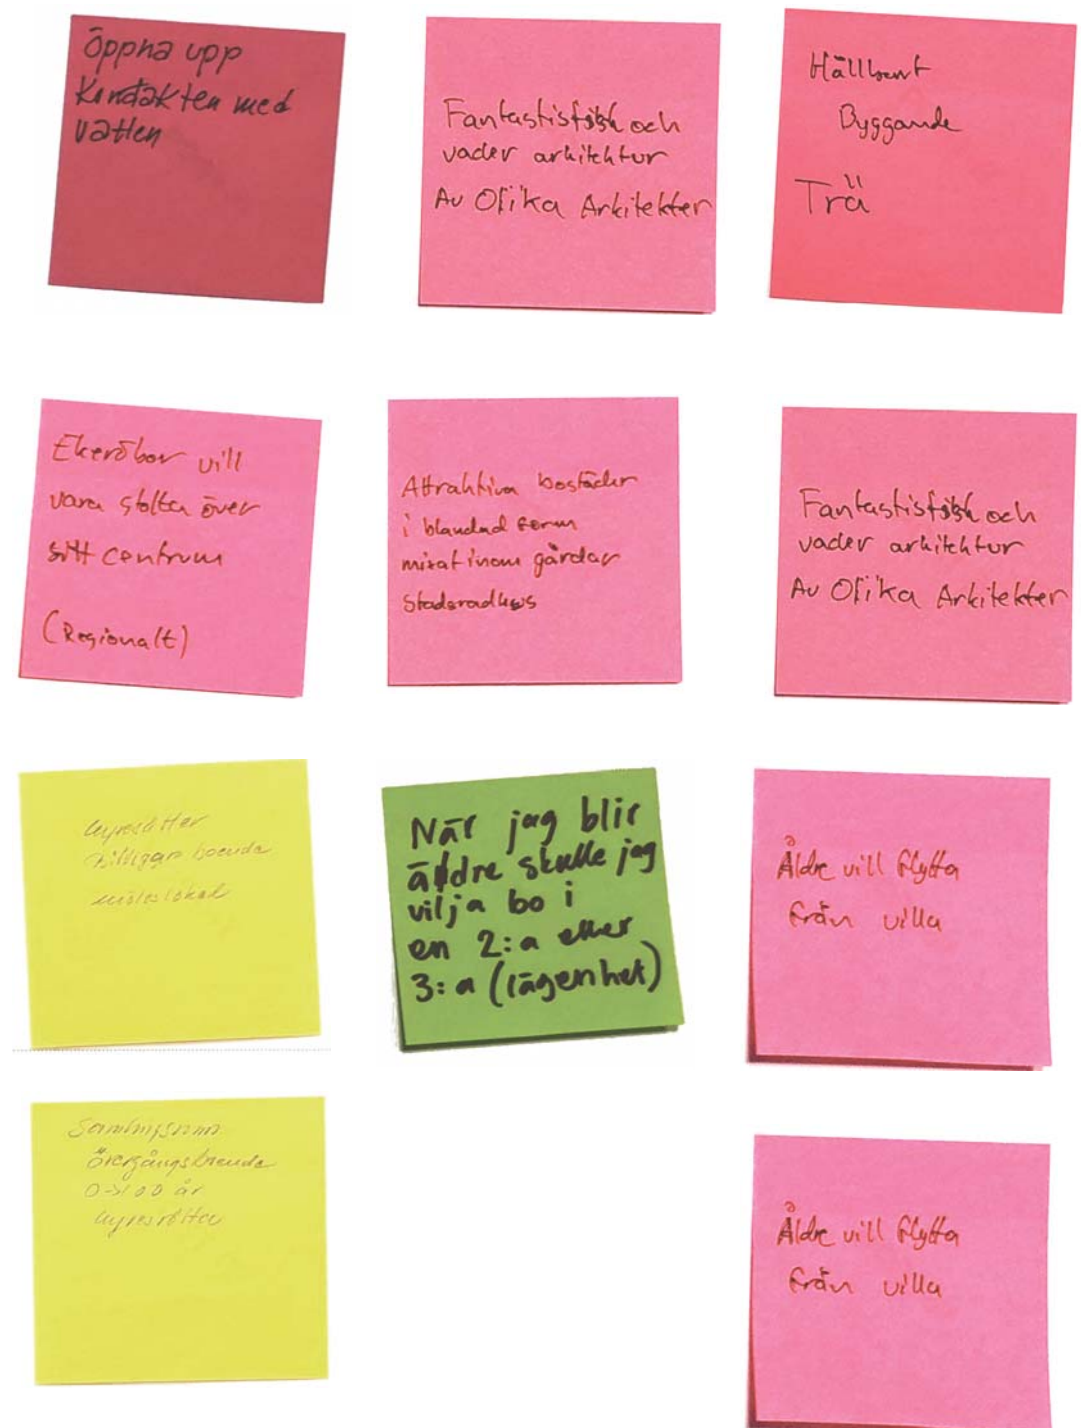 Öppna upp
Kontakten med
vatten
Fantastisfisk och
vacker arkitektur
Av Olika Arkitekter
Hållbart
Byggande
Trä
Ekeröbor vill
vara stolta över
sitt centrum
(Regionalt)
Attraktiva bostäder
i blandad form
mixat inom gårdar
Stadsradhus
Fantastisfisk och
vacker arkitektur
Av Olika Arkitekter
hyresrätter
billigare boende
möteslokal
När jag blir
äldre skulle jag
vilja bo i
en 2:a eller
3:a (lägenhet)
Äldre vill flytta
från villa
Samlingsrum
Övergångsboende
0->100 år
hyresrätter
Äldre vill flytta
från villa